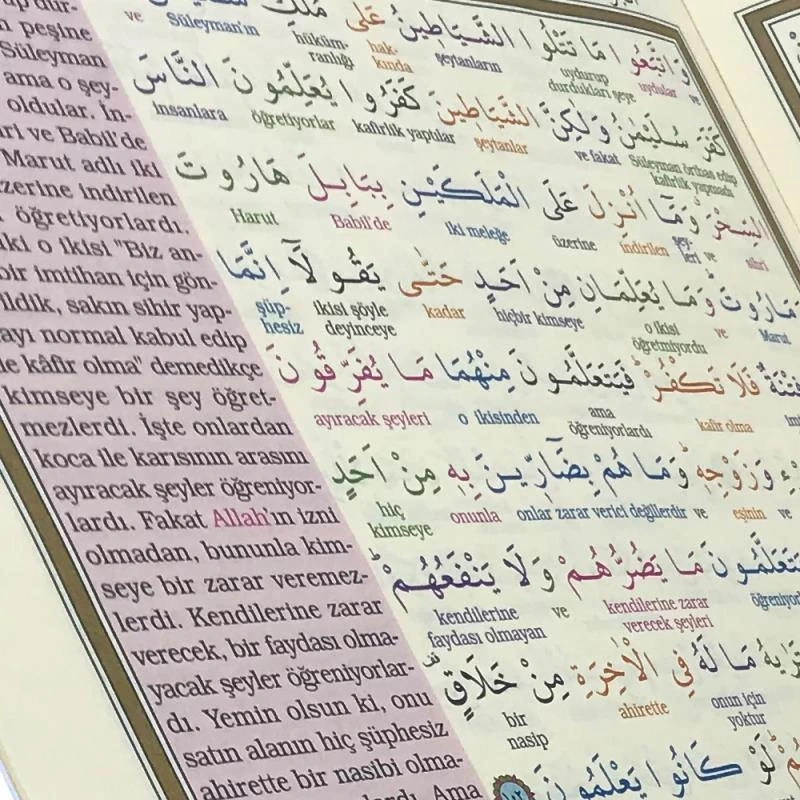 peşine
Süleyman
ama o şey-
oldular. İn-
ve Babil'de
Marut adlı iki
üzerine indirilen
öğretiyorlardı.
o ikisi "Biz an-
bir imtihan için gön-
sakın sihir yap-
normal kabul edip
kâfir olma" demedikçe
kimseye bir şey öğret-
mezlerdi. İşte onlardan
koca ile karısının arasını
ayıracak şeyler öğreniyor-
lardı. Fakat Allah'ın izni
olmadan, bununla kim-
seye bir zarar veremez-
lerdi. Kendilerine zarar
verecek, bir faydası olma-
yacak şeyler öğreniyorlar-
dı. Yemin olsun ki, onu
satın alanın hiç şüphesiz
ahirette bir nasibi olma-
Ama
وَاتَّبَعُوا مَا تَتْلُوا الشَّيَاطِينُ عَلٰى مُلْكِ
ve uydular uydurup durdukları şeye şeytanların hak-kında hüküm-ranlığı Süleyman'ın ve
كَفَرَ سُلَيْمٰنُ وَلٰكِنَّ الشَّيَاطِينَ كَفَرُوا يُعَلِّمُونَ النَّاسَ
Süleyman örtbas edip kafirlik yapmadı ve fakat şeytanlar kafirlik yaptılar öğretiyorlar insanlara
السِّحْرَ وَمَٓا اُنْزِلَ عَلَى الْمَلَكَيْنِ بِبَابِلَ هَارُوتَ
sihri ve şey-leri indirilen üzerine iki meleğe Babil'de Harut
مَارُوتَ وَمَا يُعَلِّمَانِ مِنْ اَحَدٍ حَتّٰى يَقُولَٓا اِنَّمَا
Marut ve o ikisi öğretmiyordu hiçbir kimseye kadar ikisi şöyle deyinceye şüp-hesiz
فِتْنَةٌ فَلَا تَكْفُرْ فَيَتَعَلَّمُونَ مِنْهُمَا مَا يُفَرِّقُونَ
kafir olma ama öğreniyorlardı o ikisinden ayıracak şeyleri
وَزَوْجِهٖ وَمَا هُمْ بِضَٓارّٖينَ بِهٖ مِنْ اَحَدٍ
ve eşinin ve onlar zarar verici değillerdir onunla hiç kimseye
يَتَعَلَّمُونَ مَا يَضُرُّهُمْ وَلَا يَنْفَعُهُمْ
kendilerine zarar verecek şeyleri ve kendilerine faydası olmayan
مَا لَهُ فِي الْاٰخِرَةِ مِنْ خَلَاقٍ
onun için yoktur ahirette bir nasip
لَوْ كَانُوا يَعْلَمُونَ